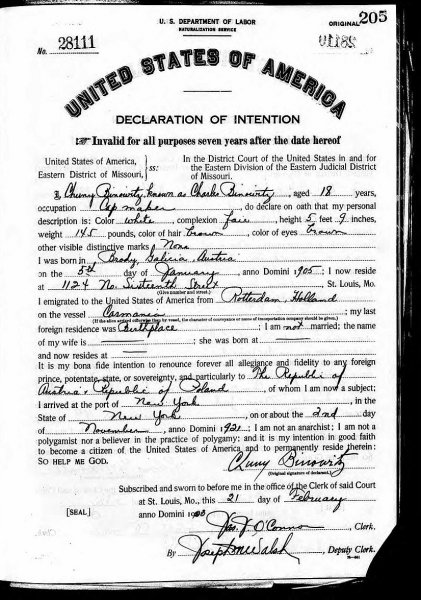 U. S. DEPARTMENT OF LABOR
NATURALIZATION SERVICE
ORIGINAL 205
No. 28111
UNITED STATES OF AMERICA
DECLARATION OF INTENTION
☞ Invalid for all purposes seven years after the date hereof
United States of America,
Eastern District of Missouri,
ss:
In the District Court of the United States in and for
the Eastern Division of the Eastern Judicial District
of Missouri.
I, Binowitz, known as Charlie Binowitz, aged 18 years,
occupation Cap maker, do declare on oath that my personal
description is: Color white, complexion fair, height 5 feet 9 inches,
weight 145 pounds, color of hair brown, color of eyes brown
other visible distinctive marks None
I was born in Brody, Galicia, Austria
on the 5th day of January, anno Domini 1905; I now reside
at 1124 No. Sixteenth Street, St. Louis, Mo.
(Give number and street.)
I emigrated to the United States of America from Rotterdam Holland
on the vessel Carmania; my last
(If the alien arrived otherwise than by vessel, the character of conveyance or name of transportation company should be given.)
foreign residence was Birthplace; I am not married; the name
of my wife is; she was born at
and now resides at
It is my bona fide intention to renounce forever all allegiance and fidelity to any foreign
prince, potentate, state, or sovereignty, and particularly to The Republic of
Austria & Republic of Poland, of whom I am now a subject;
I arrived at the port of New York, in the
State of New York, on or about the 2nd day
of November, anno Domini 1921; I am not an anarchist; I am not a
polygamist nor a believer in the practice of polygamy; and it is my intention in good faith
to become a citizen of the United States of America and to permanently reside therein:
SO HELP ME GOD.
Binowitz
(Original signature of declarant.)
Subscribed and sworn to before me in the office of the Clerk of said Court
at St. Louis, Mo., this 21 day of February
[SEAL] anno Domini
Jas. J. O'Connor, Clerk.
By Joseph M Walsh, Deputy Clerk.